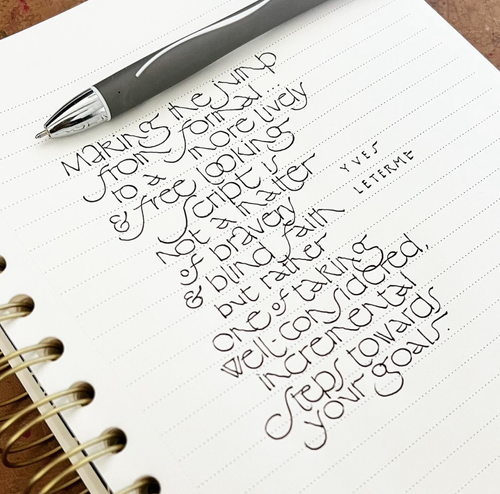 Making the jump
from formal...
to a more lively
& free looking
script is
Not a matter
of bravery
& blind faith
but rather
one of taking
well-considered,
incremental
steps towards
your goals.
YVES
LETERME